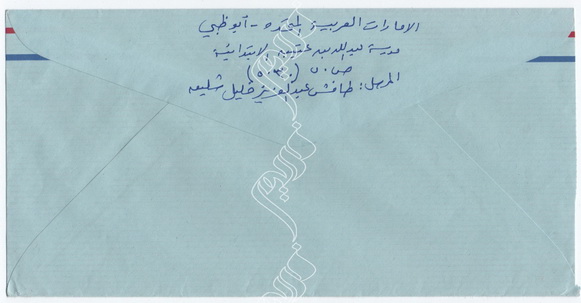 الامارات العربية المتحدة - أبوظبي
مدرسة عبدالله بن عتيبة الابتدائية
ص.ب (٥٠٣٠)
المرسل: طافش عبدالعزيز خليل شليعه